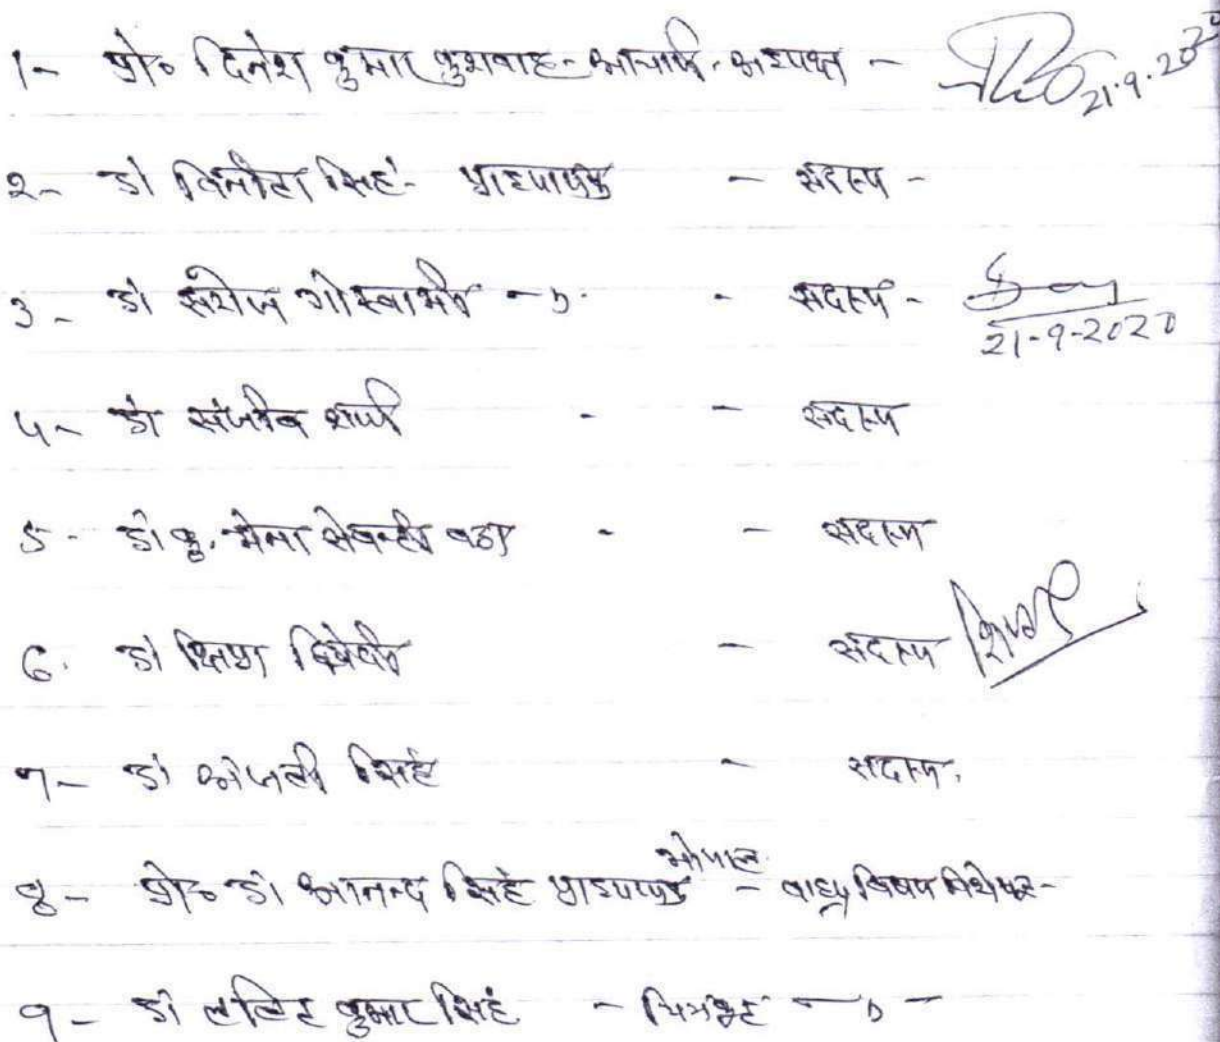 1- प्रो० दिनेश कुमार कुशवाह - आचार्य - अध्यक्ष - 21.9.2020
२- डॉ विनीता सिंह - प्राध्यापक - सदस्य -
3- डॉ सरोज गोस्वामी -〃- - सदस्य - 21-9-2020
4- डॉ संजीव शर्मा - - सदस्य
5- डॉ कु. - - सदस्य
6. डॉ क्षिप्रा द्विवेदी - सदस्य
७- डॉ अंजली सिंह - सदस्य.
8- प्रो० डॉ आनन्द सिंह प्राध्यापक भोपाल - वाह्य विषय विशेषज्ञ -
९- डॉ ललित कुमार सिंह - चित्रकूट -〃-